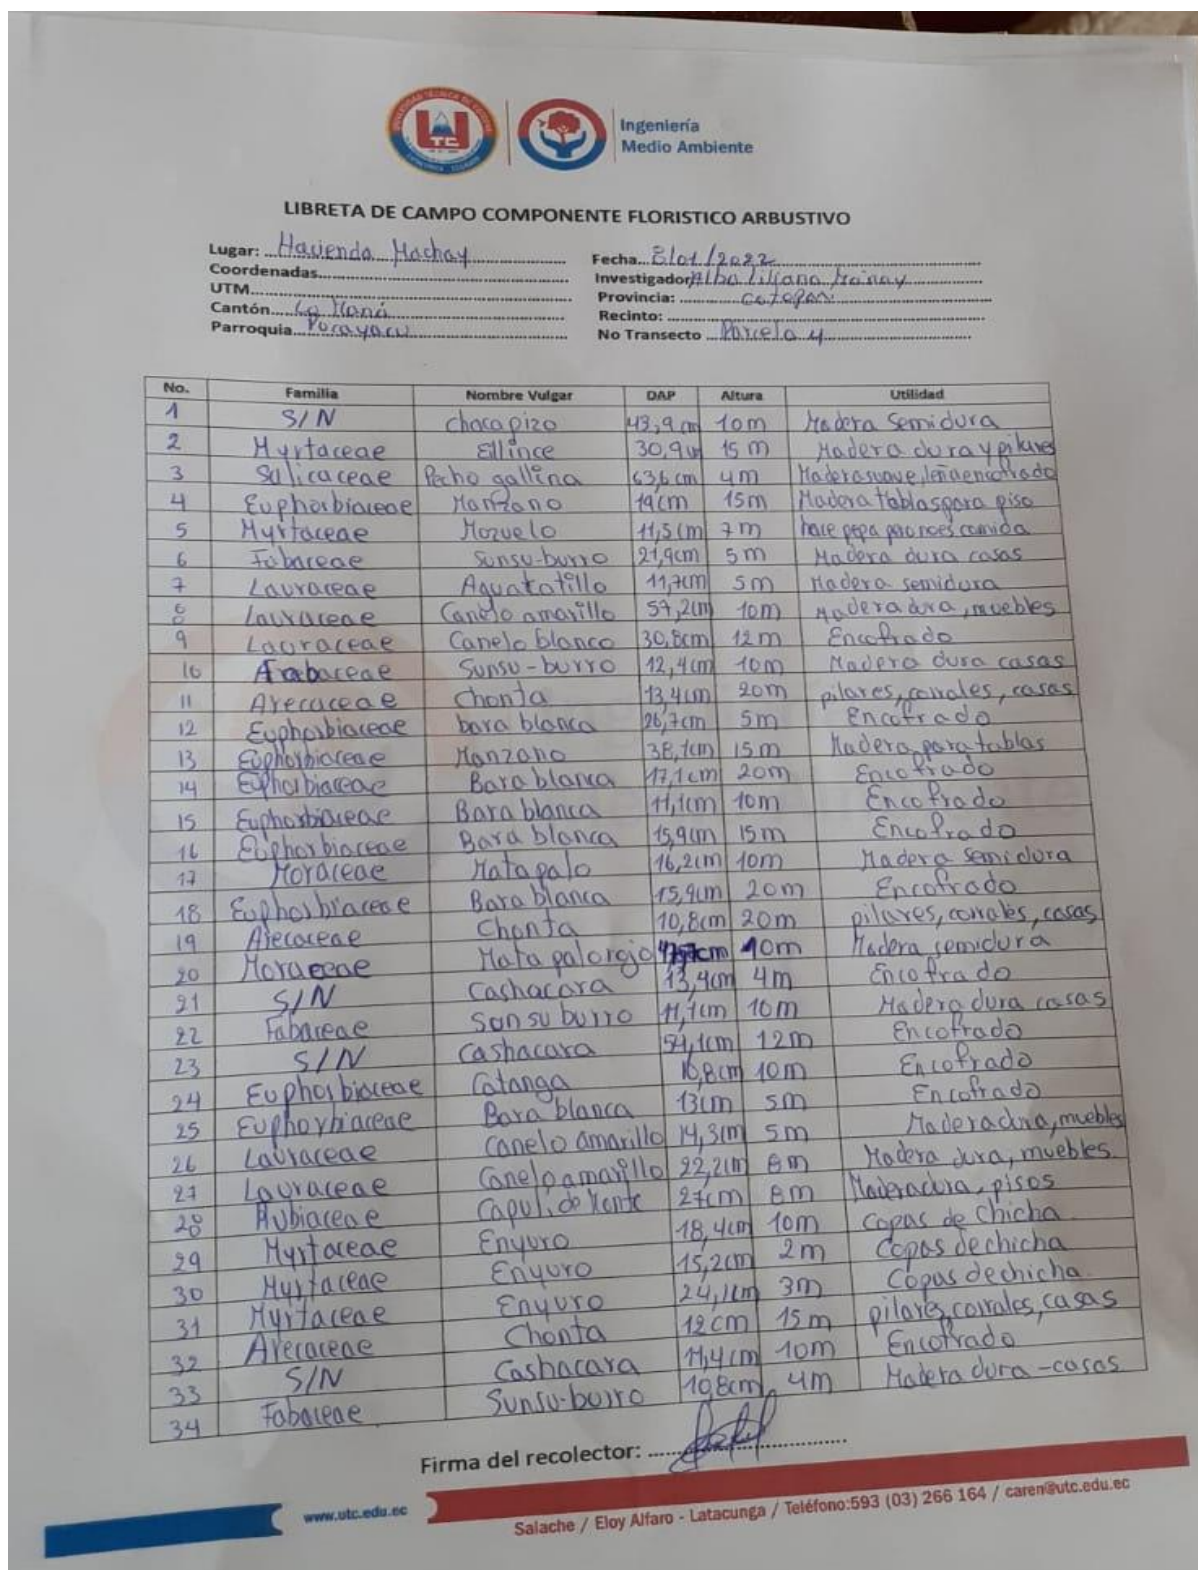 UTC
Ingeniería
Medio Ambiente
LIBRETA DE CAMPO COMPONENTE FLORISTICO ARBUSTIVO
Lugar: Hacienda Machay
Fecha 8/01/2022
Coordenadas
Investigador Alba Liliana
UTM
Provincia: Cotopaxi
Cantón La Maná
Recinto:
Parroquia Pucayacu
No Transecto Parcela 4
No. Familia Nombre Vulgar DAP Altura Utilidad
1 S/N chacapizo 43,9 cm 10m Madera Semidura
2 Myrtaceae Ellince 30,9cm 15 m Madera dura y pilares
3 Salicaceae Pecho gallina 63,6 cm 4m Madera suave, leña encofrado
4 Euphorbiaceae Manzano 19cm 15m Madera tablas para piso
5 Myrtaceae Mozuelo 11,5cm 7m hace pepa pero no es comida
6 Fabaceae Sunsu-burro 21,9cm 5m Madera dura casas
7 Lauraceae Aguatatillo 11,7cm 5m Madera semidura
8 Lauraceae Canelo amarillo 57,2cm 10m Madera dura, muebles
9 Lauraceae Canelo blanco 30,8cm 12m Encofrado
10 Sunsu-burro 12,4cm 10m Madera dura casas
11 Arecaceae Chonta 13,4cm 20m pilares, corrales, casas
12 Euphorbiaceae bara blanca 26,7cm 5m Encofrado
13 Euphorbiaceae Manzano 38,1cm 15m Madera para tablas
14 Euphorbiaceae Bara blanca 17,1cm 20m Encofrado
15 Euphorbiaceae Bara blanca 11,1cm 10m Encofrado
16 Euphorbiaceae Bara blanca 15,9cm 15m Encofrado
17 Moraceae Matapalo 16,2cm 10m Madera Semidura
18 Euphorbiaceae Bara blanca 15,9cm 20m Encofrado
19 Arecaceae Chonta 10,8cm 20m pilares, corrales, casas
20 Moraceae Mata palo rojo 10m Madera semidura
21 S/N Cashacara 13,4cm 4m Encofrado
22 Fabaceae Sunsu burro 11,1cm 10m Madera dura casas
23 S/N Cashacara 54,1cm 12m Encofrado
24 Euphorbiaceae Catanga 10,8cm 10m Encofrado
25 Euphorbiaceae Bara blanca 13cm 5m Encofrado
26 Lauraceae Canelo amarillo 14,3cm 5m Madera dura, muebles
27 Lauraceae Canelo amarillo 22,2cm 8m Madera dura, muebles.
28 Rubiaceae Capulí de Monte 27cm 8m Madera dura, pisos
29 Myrtaceae Enyuro 18,4cm 10m Copas de chicha
30 Myrtaceae Enyuro 15,2cm 2m Copas de chicha
31 Myrtaceae Enyuro 24,1cm 3m Copas de chicha.
32 Arecaceae Chonta 12cm 15m pilares, corrales, casas
33 S/N Cashacara 11,4cm 10m Encofrado
34 Fabaceae Sunsu-burro 10,8cm 4m Madera dura - casas
Firma del recolector:
www.utc.edu.ec
Salache / Eloy Alfaro - Latacunga / Teléfono:593 (03) 266 164 / caren@utc.edu.ec